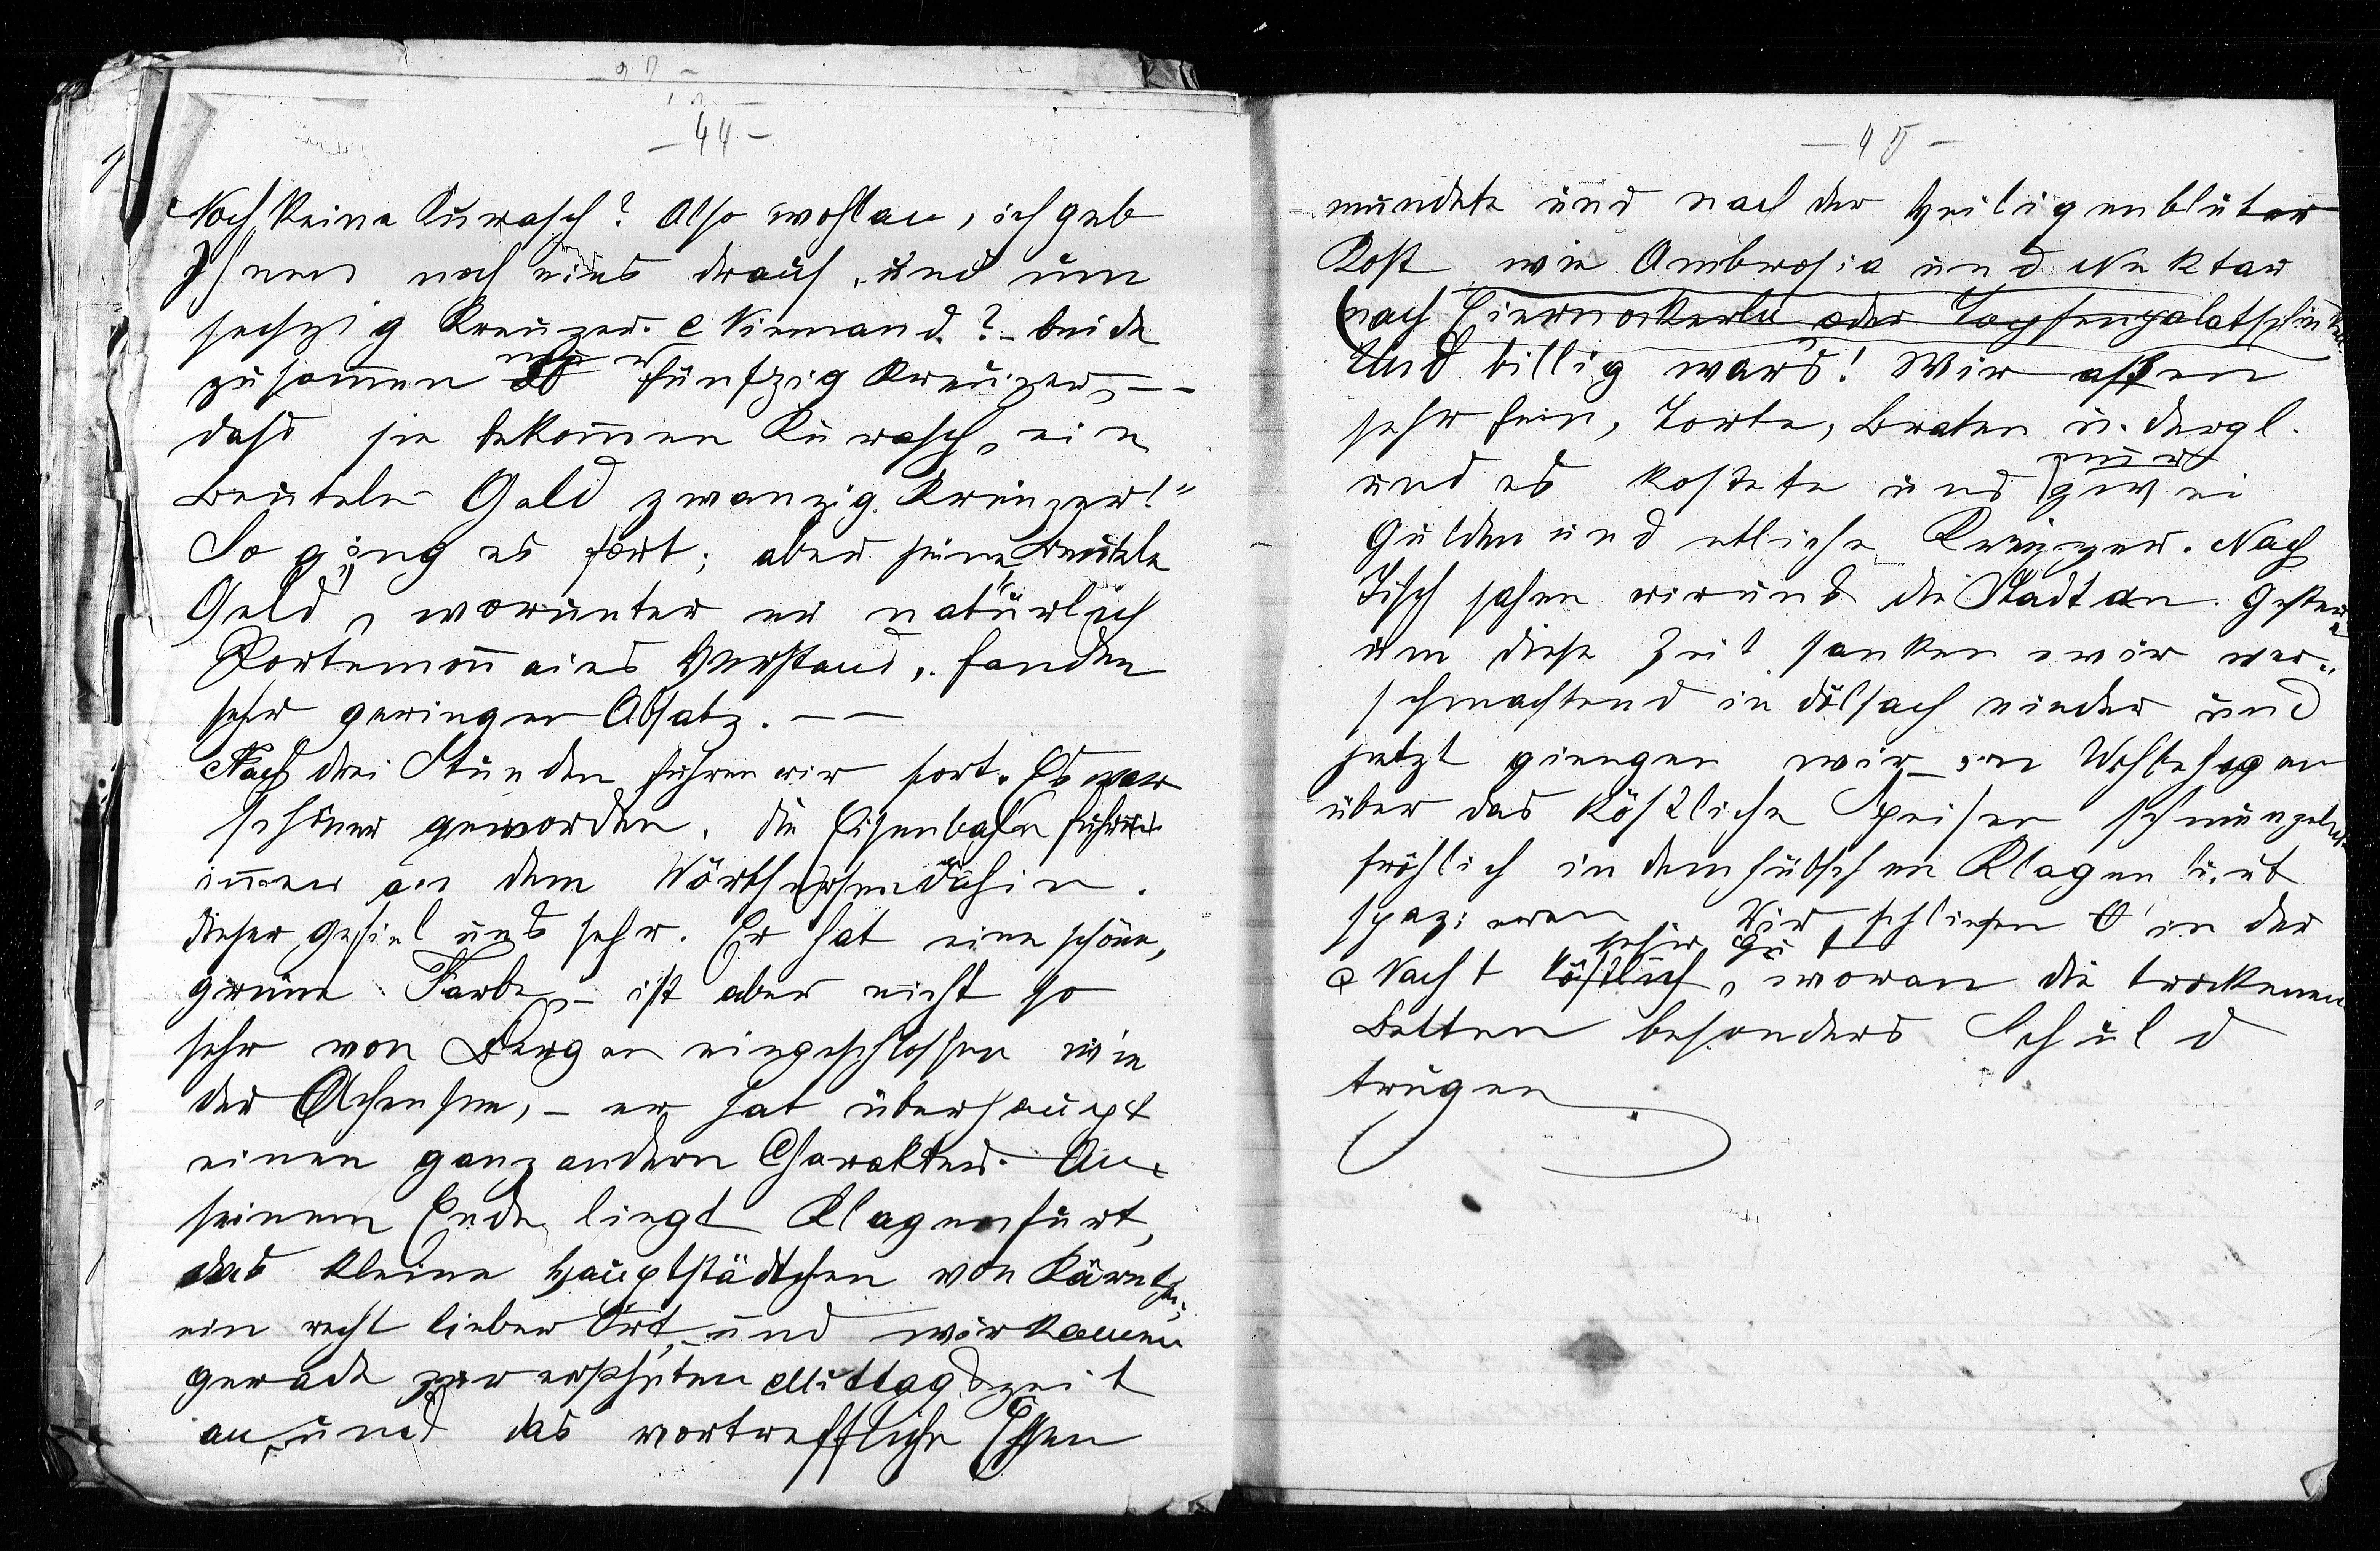 - 44 -
Noch keine Kurasch? Also wohlan, ich geb
Ihnen noch eins drauf, und um
sechzig Kreuzer. Niemand? - beide
zusammen nur fünfzig Kreuzer, --
dass sie bekommen Kurasch, ein
Beutele Geld zwanzig Kreuzer!"
So ging es fort; aber seine Beutele
Geld, worunter er natürlich
Portemonnaies verstand, fanden
sehr geringen Absatz. --
Nach drei Stunden fuhren wir fort. Es war
schöner geworden. Die Eisenbahn führt
immer an dem Wörthersee dahin.
Dieser gefiel uns sehr. Er hat eine schöne,
grüne Farbe, - ist aber nicht so
sehr von Bergen eingeschlossen wie
der Achensee, - er hat überhaupt
einen ganz andern Charakter. An
seinem Ende liegt Klagenfurt,
das kleine Hauptstädtchen von Kärnthen,
ein recht lieber Ort, und wir kamen
gerade zur ersehnten Mittagszeit
an, und das vortreffliche Essen
- 45 -
mundete uns nach der Heiligenbluter
Kost wie Ambrosia und Nektar
(nach Eiernockerln oder Topfenpalatschinken.
Und billig wars! Wir aßen
sehr fein, Torte, Braten u. dergl.
nur
und es kostete uns zwei
Gulden und etliche Kreuzer. Nach
Tisch sahen wir uns die Stadt an. Gestern
um diese Zeit sanken wir ver-
schmachtend in Dölsach nieder und
jetzt giengen wir im Wohlbehagen
über das köstliche Speisen schmunzelnd
fröhlich in dem hübschen Klagenfurt
spazieren. Wir schliefen in der
sehr gut
Nacht köstlich, woran die trockenen
Betten besonders Schuld
trugen.